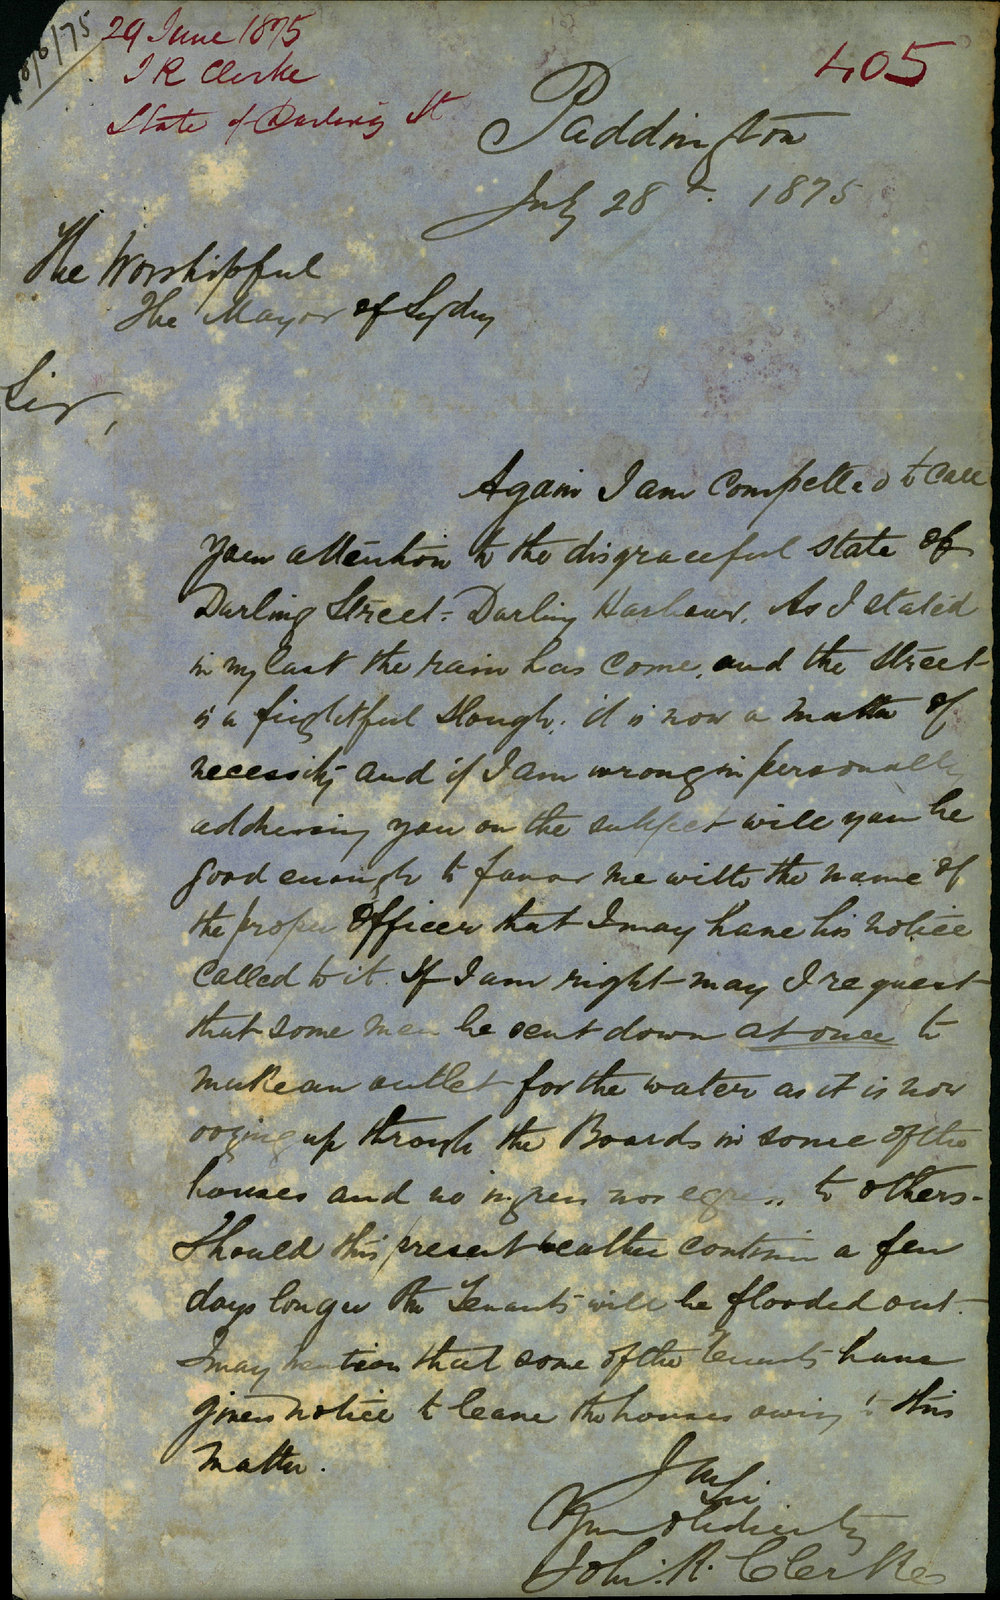 29 June 1875
J R Clerke
State of Darling St
405
/6/75
Paddington
July 28th. 1875
The Worshipful
The Mayor of Sydny
Sir,
Again I am compelled to call
your attention to the disgraceful state of
Darling Street - Darling Harbour. As I stated
in my last the rain has come, and the street
is a frightful slough, it is now a matter of
necessity and if I am wrong in personally
addressing you on the subject will you be
good enough to favor me with the name of
the proper Officer that I may have his notice
called to it. If I am right may I request
that some men be sent down at once to
make an outlet for the water as it is now
oozing up through the Boards in some of the
houses and no ingress nor egress to others -
Should this present weather continue a few
days longer the Tenants will be flooded out.
I may mention that some of the Tenants have
given notice to leave the houses owing to this
matter.
I am Sir
Your obediently
John. R. Clerke